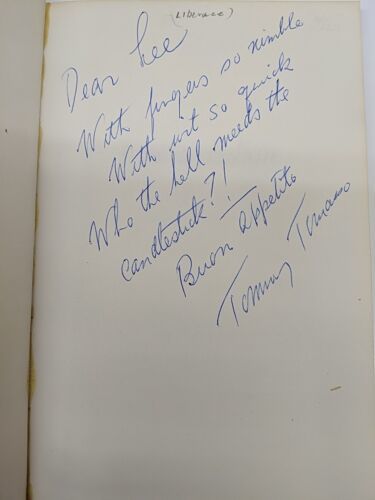 (Liberace)
Dear Lee
With fingers so nimble
With wit so quick
Who the hell needs the
candlestick?!
Buon Appetito
Tommy Tomasso